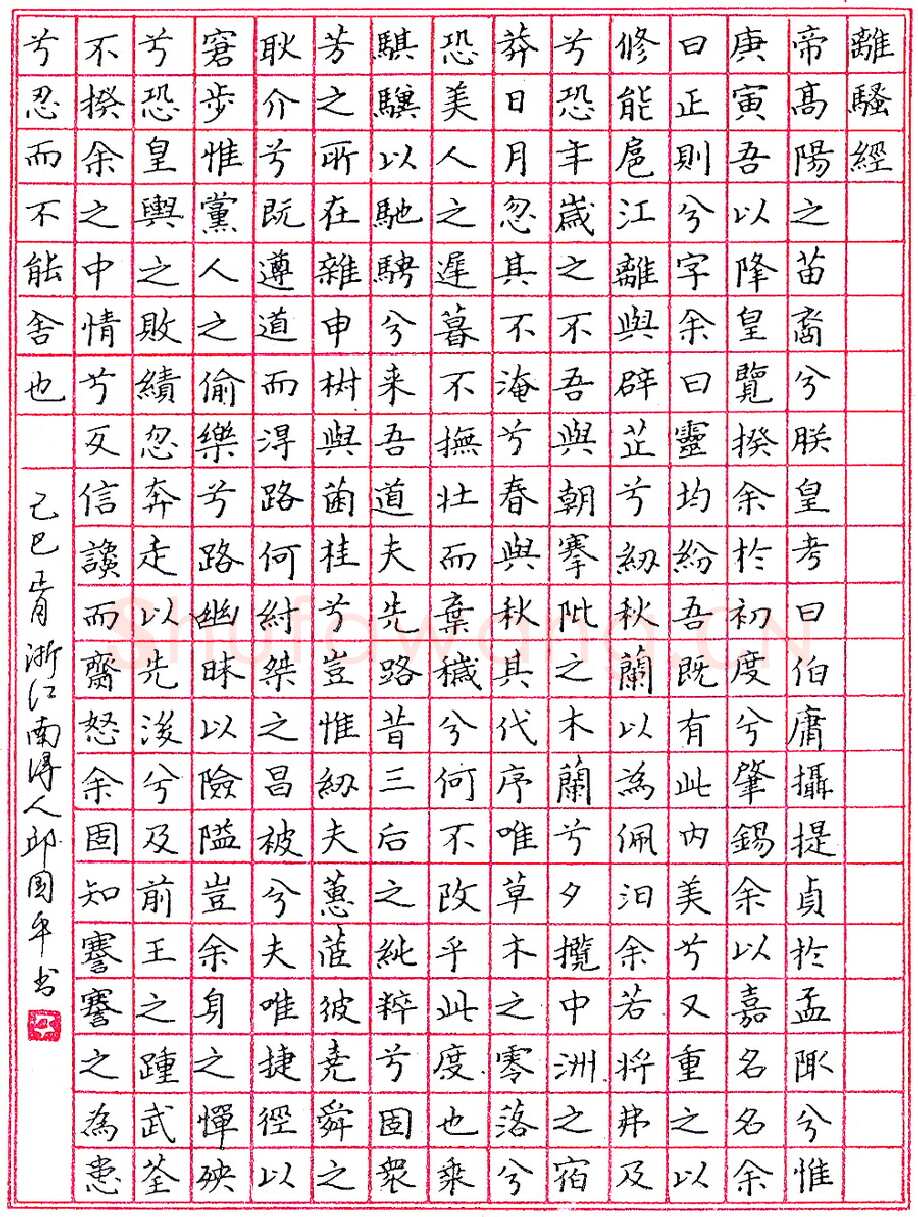 離騷經
帝高陽之苗裔兮朕皇考曰伯庸攝提貞於孟陬兮惟
庚寅吾以降皇覽揆余於初度兮肇錫余以嘉名名余
曰正則兮字余曰靈均紛吾既有此內美兮又重之以
修能扈江離與辟芷兮紉秋蘭以為佩汩余若將弗及
兮恐年歲之不吾與朝搴阰之木蘭兮夕攬中洲之宿
莽日月忽其不淹兮春與秋其代序唯草木之零落兮
恐美人之遲暮不撫壯而棄穢兮何不改乎此度也乘
騏驥以馳騁兮来吾道夫先路昔三后之純粹兮固衆
芳之所在雜申椒與菌桂兮豈惟紉夫蕙茝彼堯舜之
耿介兮既遵道而得路何紂桀之昌被兮夫唯捷徑以
窘步惟黨人之偷樂兮路幽昧以險隘豈余身之憚殃
兮恐皇輿之敗績忽奔走以先後兮及前王之踵武荃
不揆余之中情兮反信讒而齌怒余固知謇謇之為患
兮忍而不能舍也
己巳正月浙江南浔人邱国平书
Shufawang.CN